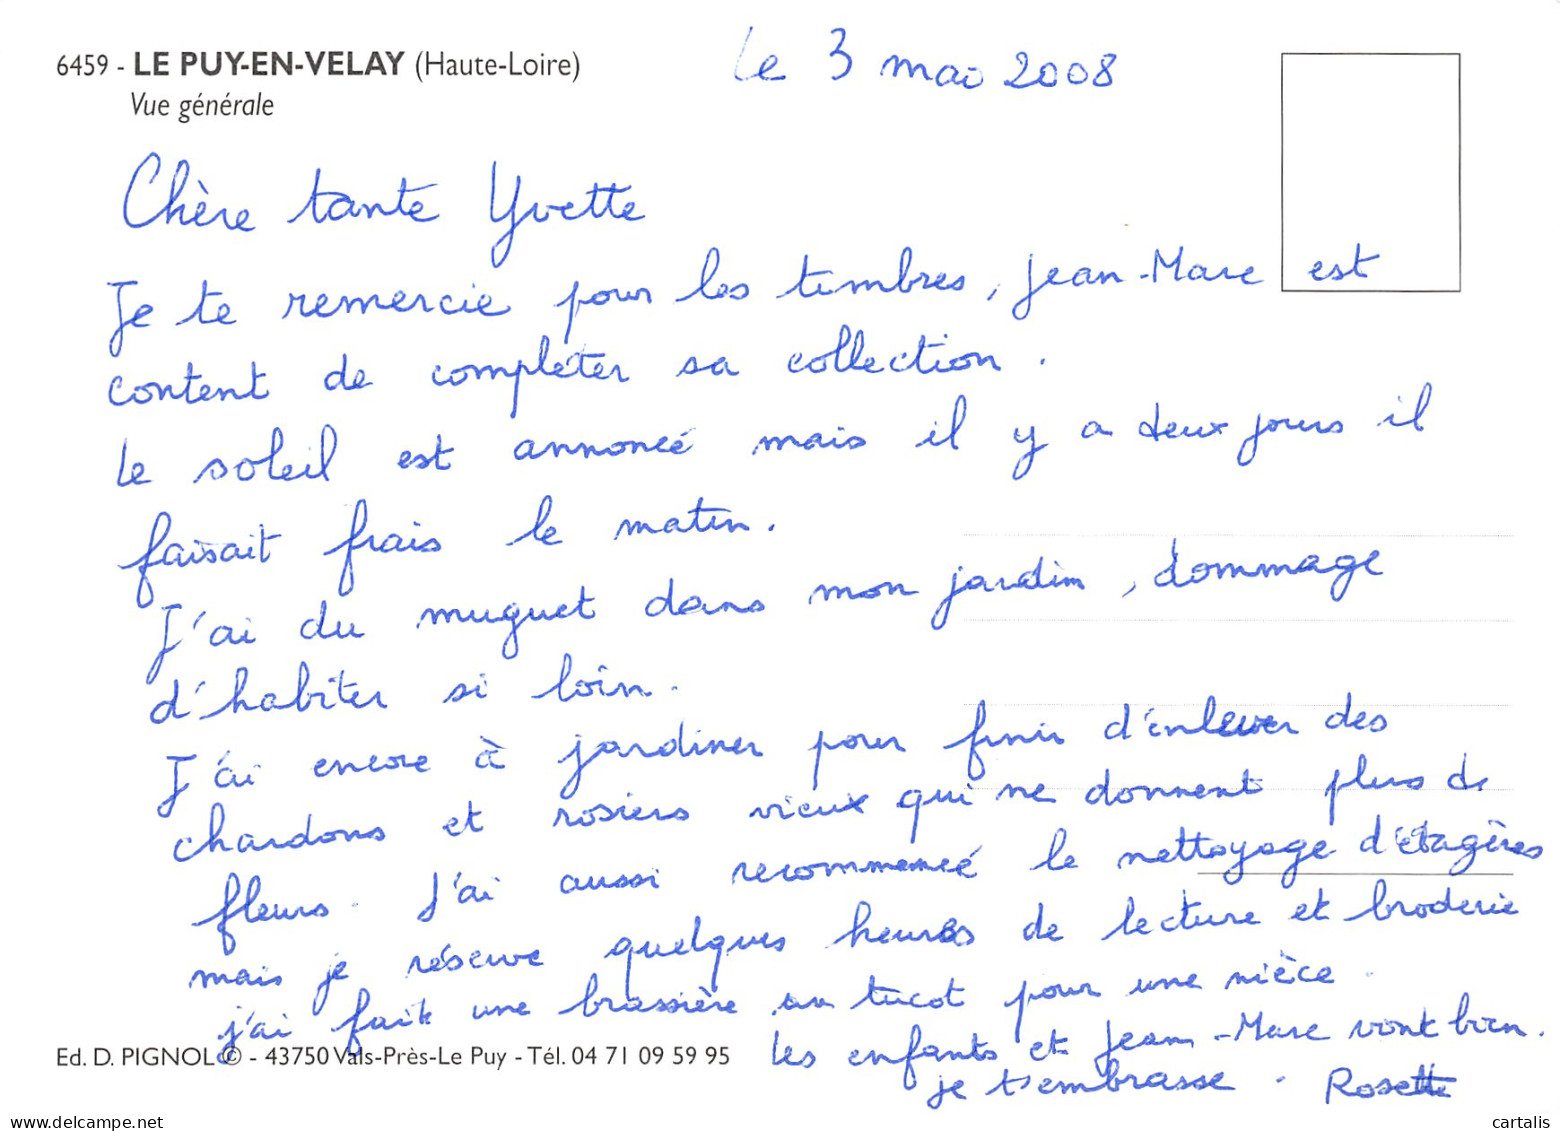 6459 - LE PUY-EN-VELAY (Haute-Loire)
Vue générale
Le 3 mai 2008
Chère tante Yvette
Je te remercie pour les timbres, Jean-Marc est
content de compléter sa collection.
Le soleil est annoncé mais il y a deux jours il
faisait frais le matin.
J'ai du muguet dans mon jardin, dommage
d'habiter si loin.
J'ai encore à jardiner pour finir d'enlever des
chardons et rosiers vieux qui ne donnent plus de
fleurs. J'ai aussi recommencé le nettoyage d'étagères
mais je réserve quelques heures de lecture et broderie
j'ai fait une brassière au tricot pour une nièce.
Les enfants et Jean-Marc vont bien.
je t'embrasse. Rosette
Ed. D. PIGNOL © - 43750 Vals-Près-Le Puy - Tél. 04 71 09 59 95
www.delcampe.net
cartalis